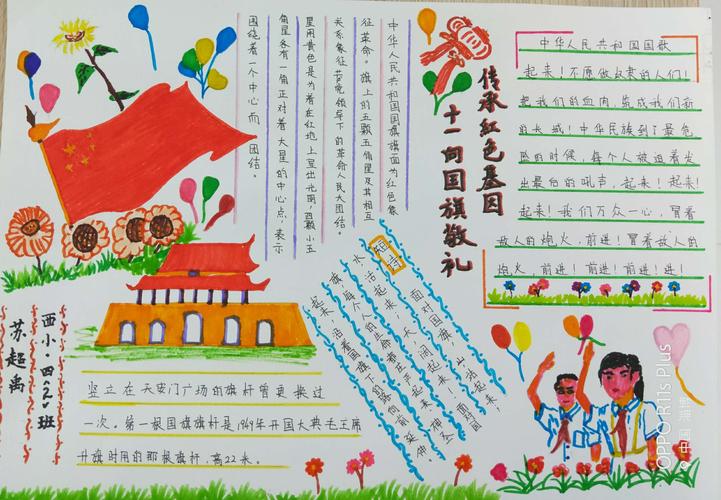 中华人民共和国国旗旗面为红色象
征革命。旗上的五颗五角星及其相互
关系象征共产党领导下的革命人民大团结。
星用黄色是为着在红地上显出光明，四颗小五
角星各有一角正对着大星的中心点，表示
围绕着一个中心而团结。
传承红色基因
十一向国旗敬礼
中华人民共和国国歌
起来！不愿做奴隶的人们！
把我们的血肉，筑成我们新
的长城！中华民族到了最危
险的时候，每个人被迫着发
出最后的吼声，起来！起来！
起来！我们万众一心，冒着
敌人的炮火，前进！冒着敌人的
炮火，前进！前进！前进！进！
短诗
面对国旗，山站起来，
水活起来，天阔起来，面对国
旗，每个人的生命都庄严起来，神圣
起来，沿着国旗下的路向前延伸。
西小·四(2)班
苏超禹
竖立在天安门广场的旗杆曾更换过
一次。第一根国旗旗杆是1949年开国大典毛主席
升旗时用的那根旗杆，高22米。
OPPO R11s Plus
中国